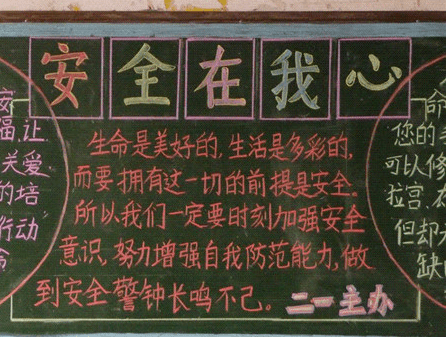 安全在我心
生命是美好的,生活是多彩的,
而要拥有这一切的前提是安全。
所以我们一定要时刻加强安全
意识,努力增强自我防范能力,做
到安全警钟长鸣不己。
二一主办
安
福,让
关爱
的培
行动
命
您的
可以修
拉宫,
但却
缺